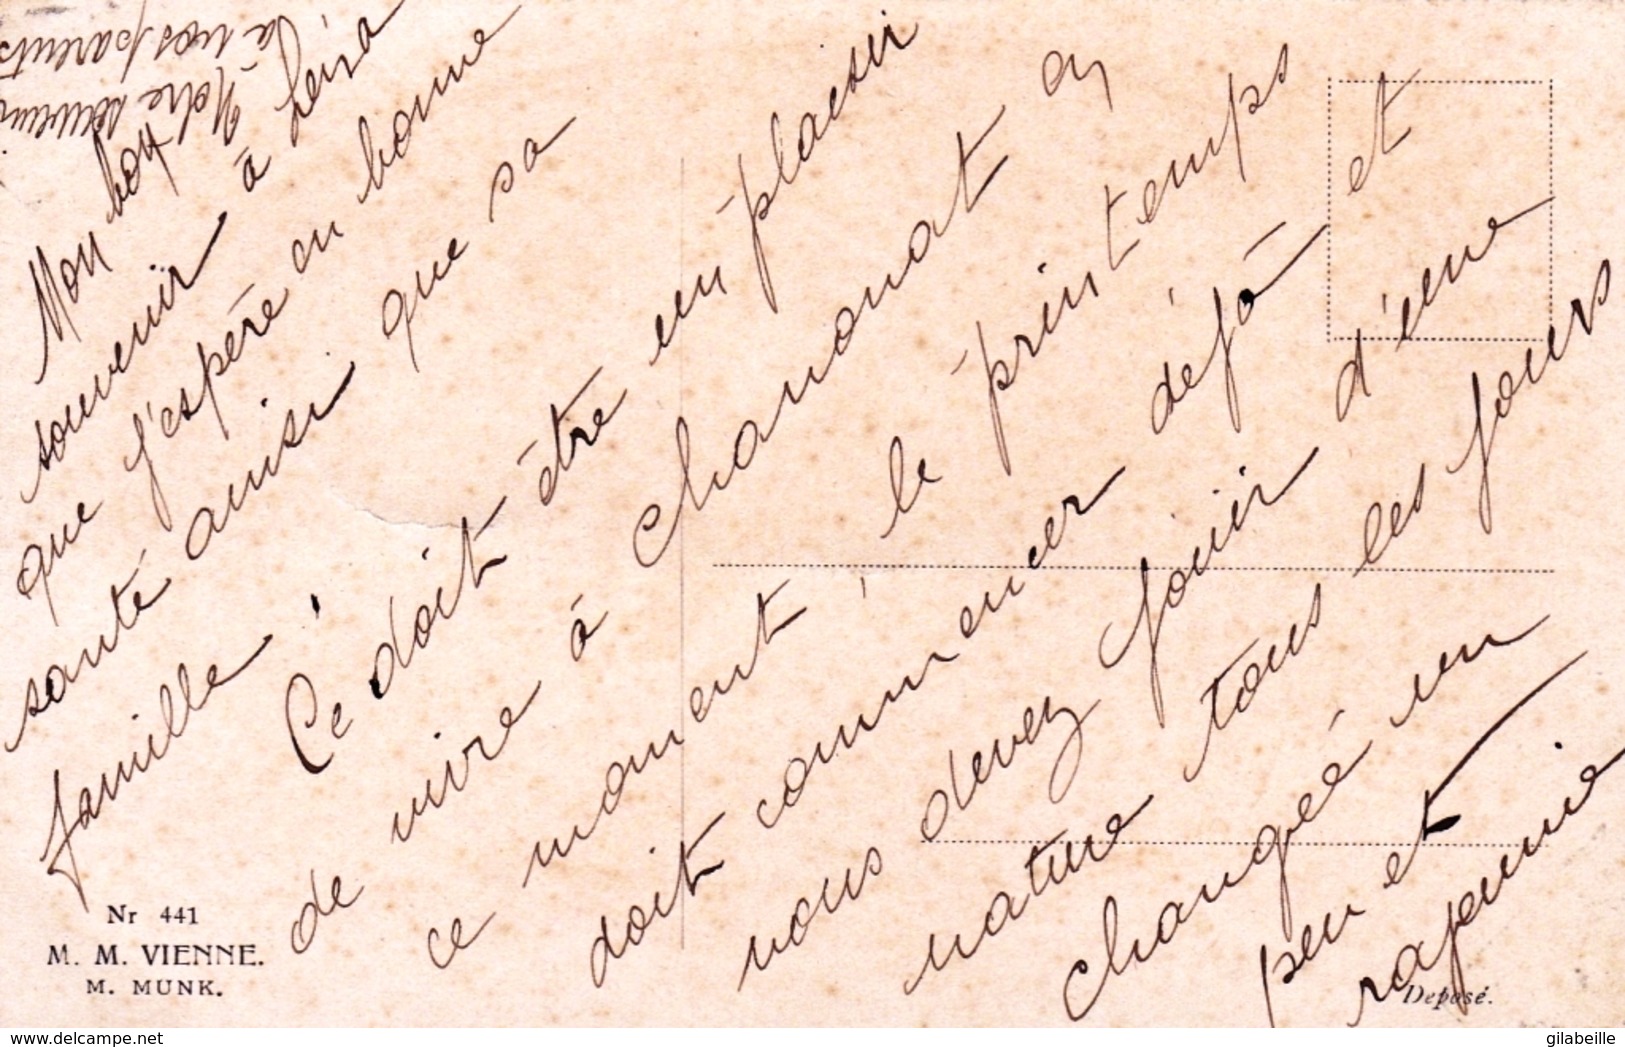 Mon bon
souvenir à Leisa
que j'espère en bonne
santé ainsi que sa
famille
Ce doit être un plaisir
de vivre à Chanonat en
ce moment, le printemps
doit commencer déjà et
vous devez jouir d'une
nature tous les jours
changée un
peu et
rajeunie
Notre souvenir
à vos parents
Nr 441
M. M. VIENNE.
M. MUNK.
Deposé.
www.delcampe.net
gilabeille